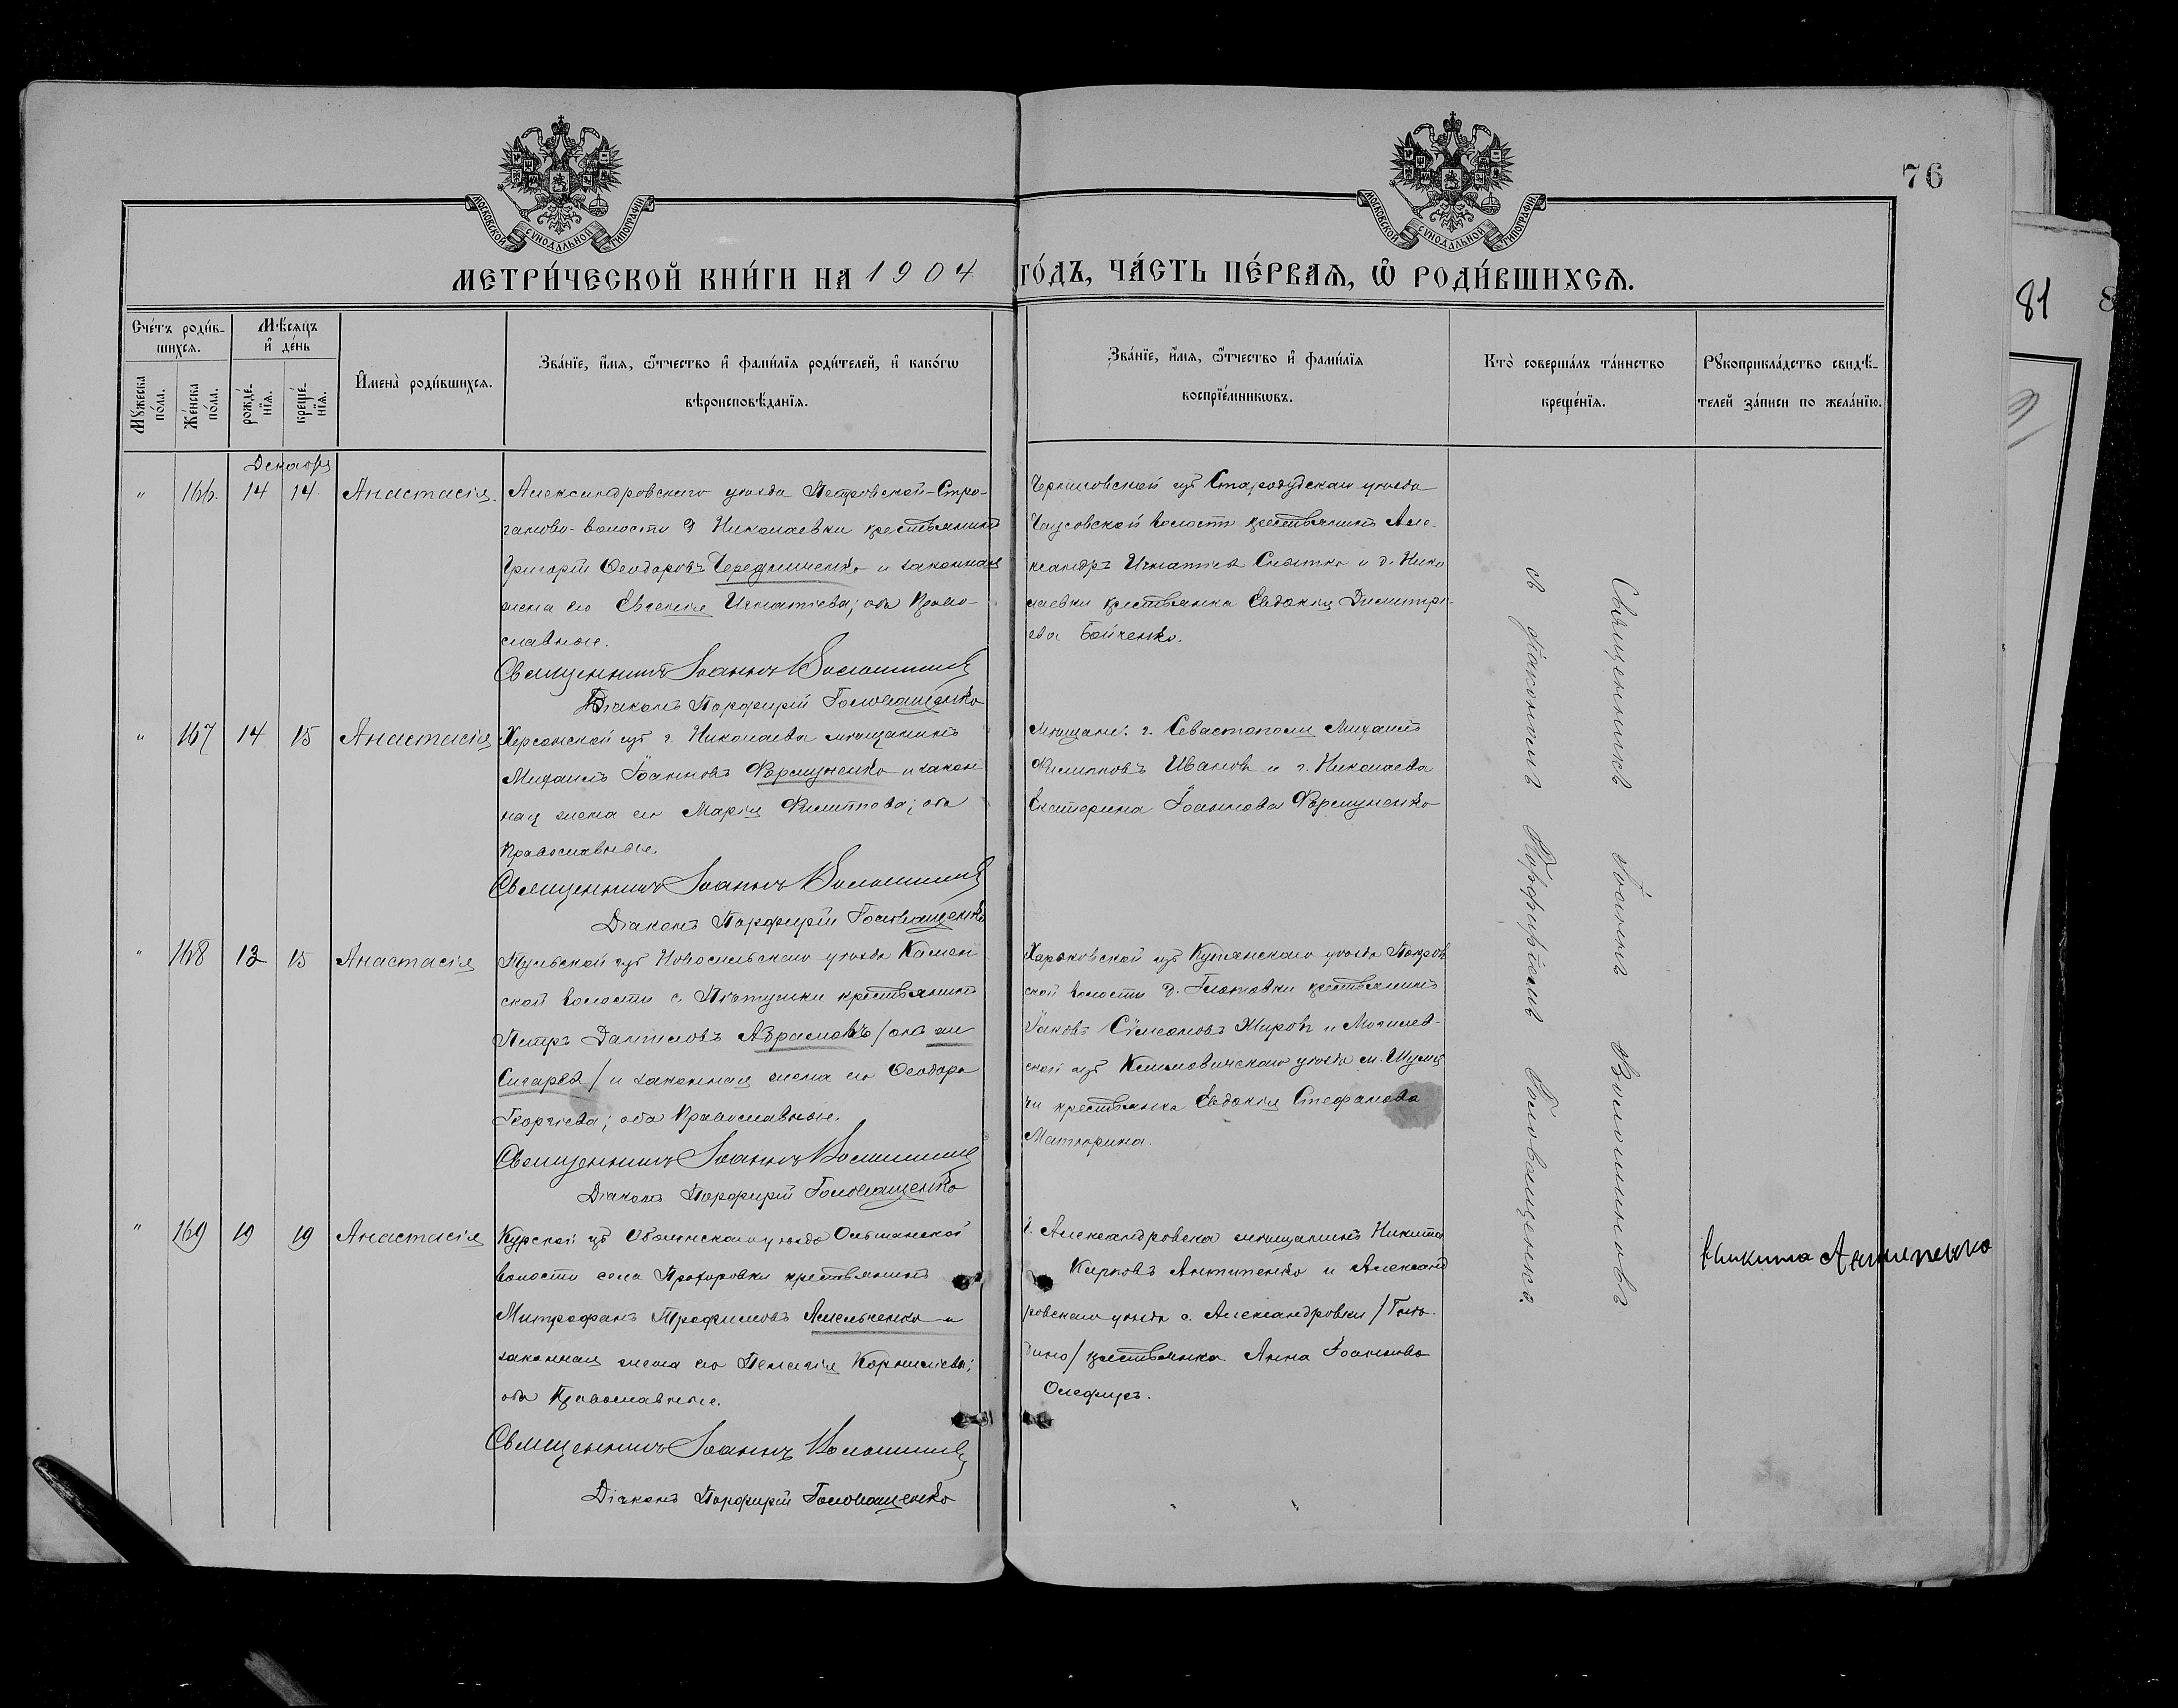 76
81
МОСКОВСКОЙ СѴНОДАЛЬНОЙ ТИПОГРАФІИ
МОСКОВСКОЙ СѴНОДАЛЬНОЙ ТИПОГРАФІИ
МЕТРИ́ЧЕСКОЙ КНИ́ГИ НА 1904 ГО́ДЪ, ЧА́СТЬ ПЕ́РВАѦ, Ѽ РОДИ́ВШИХСѦ.
Сче́тъ роди́в-
шихсѧ.
Мꙋжеска
по́ла.
Же́нска
по́ла.
Мѣ́сѧцъ
и҆ де́нь
рожде́-
нїѧ.
креще́-
нїѧ.
И҆мена̀ роди́вшихсѧ.
Зва́нїе, и҆́мѧ, ѻ҆́тчество и҆ фами́лїѧ роди́телей, и҆ како́гѡ
вѣроисповѣ́данїѧ.
Зва́нїе, и҆́мѧ, ѻ҆́тчество и҆ фами́лїѧ
воспрїе́мникѡвъ.
Кто̀ соверша́лъ та́инство
креще́нїѧ.
Рꙋкоприкла́дство свидѣ́-
телей за́писи по жела́нїю.
Декабрь
" 166. 14 14 Анастасія.
Александровскаго уѣзда Петровской-Стро-
ганово-волости д Николаевки крестьянинъ
Григорій Ѳеодоровъ Чередниченко и законная
жена его Евгенія Игнатіева; оба Право-
славные.
Священникъ Іоаннъ Волошиновъ
Діаконъ Порфирій Головащенко
Черниговской губ Стародубскаго уѣзда
волости крестьянинъ Але-
ксандръ Игнатіевъ и д. Нико
лаевки крестьянка Евдокія Димитрі-
ева Бойченко.
" 167 14 15 Анастасія
Херсонской губ г. Николаева мѣщанинъ
Михаилъ Іоанновъ Фармуненко и закон
ная жена его Марія Филиппова; оба
Православные.
Священникъ Іоаннъ Волошиновъ
Діаконъ Порфирій Головащенко
Мѣщане: г. Севастополя Михаилъ
Филипповъ Ивановъ и г. Николаева
Екатерина Іоаннова Фармуненко
" 168 13 15 Анастасія
Тульской губ Новосильскаго уѣзда Камен
ской волости с. крестьянинъ
Петръ Даниловъ Абрамовъ / онъ же
/ и законная жена его Ѳеодора
Георгіева; оба Православные.
Священникъ Іоаннъ Волошиновъ
Діаконъ Порфирій Головащенко
Харьковской губ Купянскаго уѣзда Покров
ской волости д. крестьянинъ
Іаковъ Сѵмеоновъ Жировъ и Могилев-
ской губ Климовичскаго уѣзда м. Шумя
чи крестьянка Евдокія Стефанова
Матюрина.
" 169 19 19 Анастасія
Курской губ Обоянскаго уѣзда Ольшанской
волости села Прохоровки крестьянинъ
Митрофанъ Трофимовъ Амельченко и
законная жена его Пелагія Корниліева;
оба Православные.
Священникъ Іоаннъ Волошиновъ
Діаконъ Порфирій Головащенко
г. Александровска мѣщанинъ Никита
Карповъ Антипенко и Александ
ровскаго уѣзда с. Александровки /
/ крестьянка Анна Іоаннова
Олефиръ.
Священникъ Іоаннъ Волошиновъ
съ діакономъ Порфиріемъ Головащенко.
Никита Антипенко